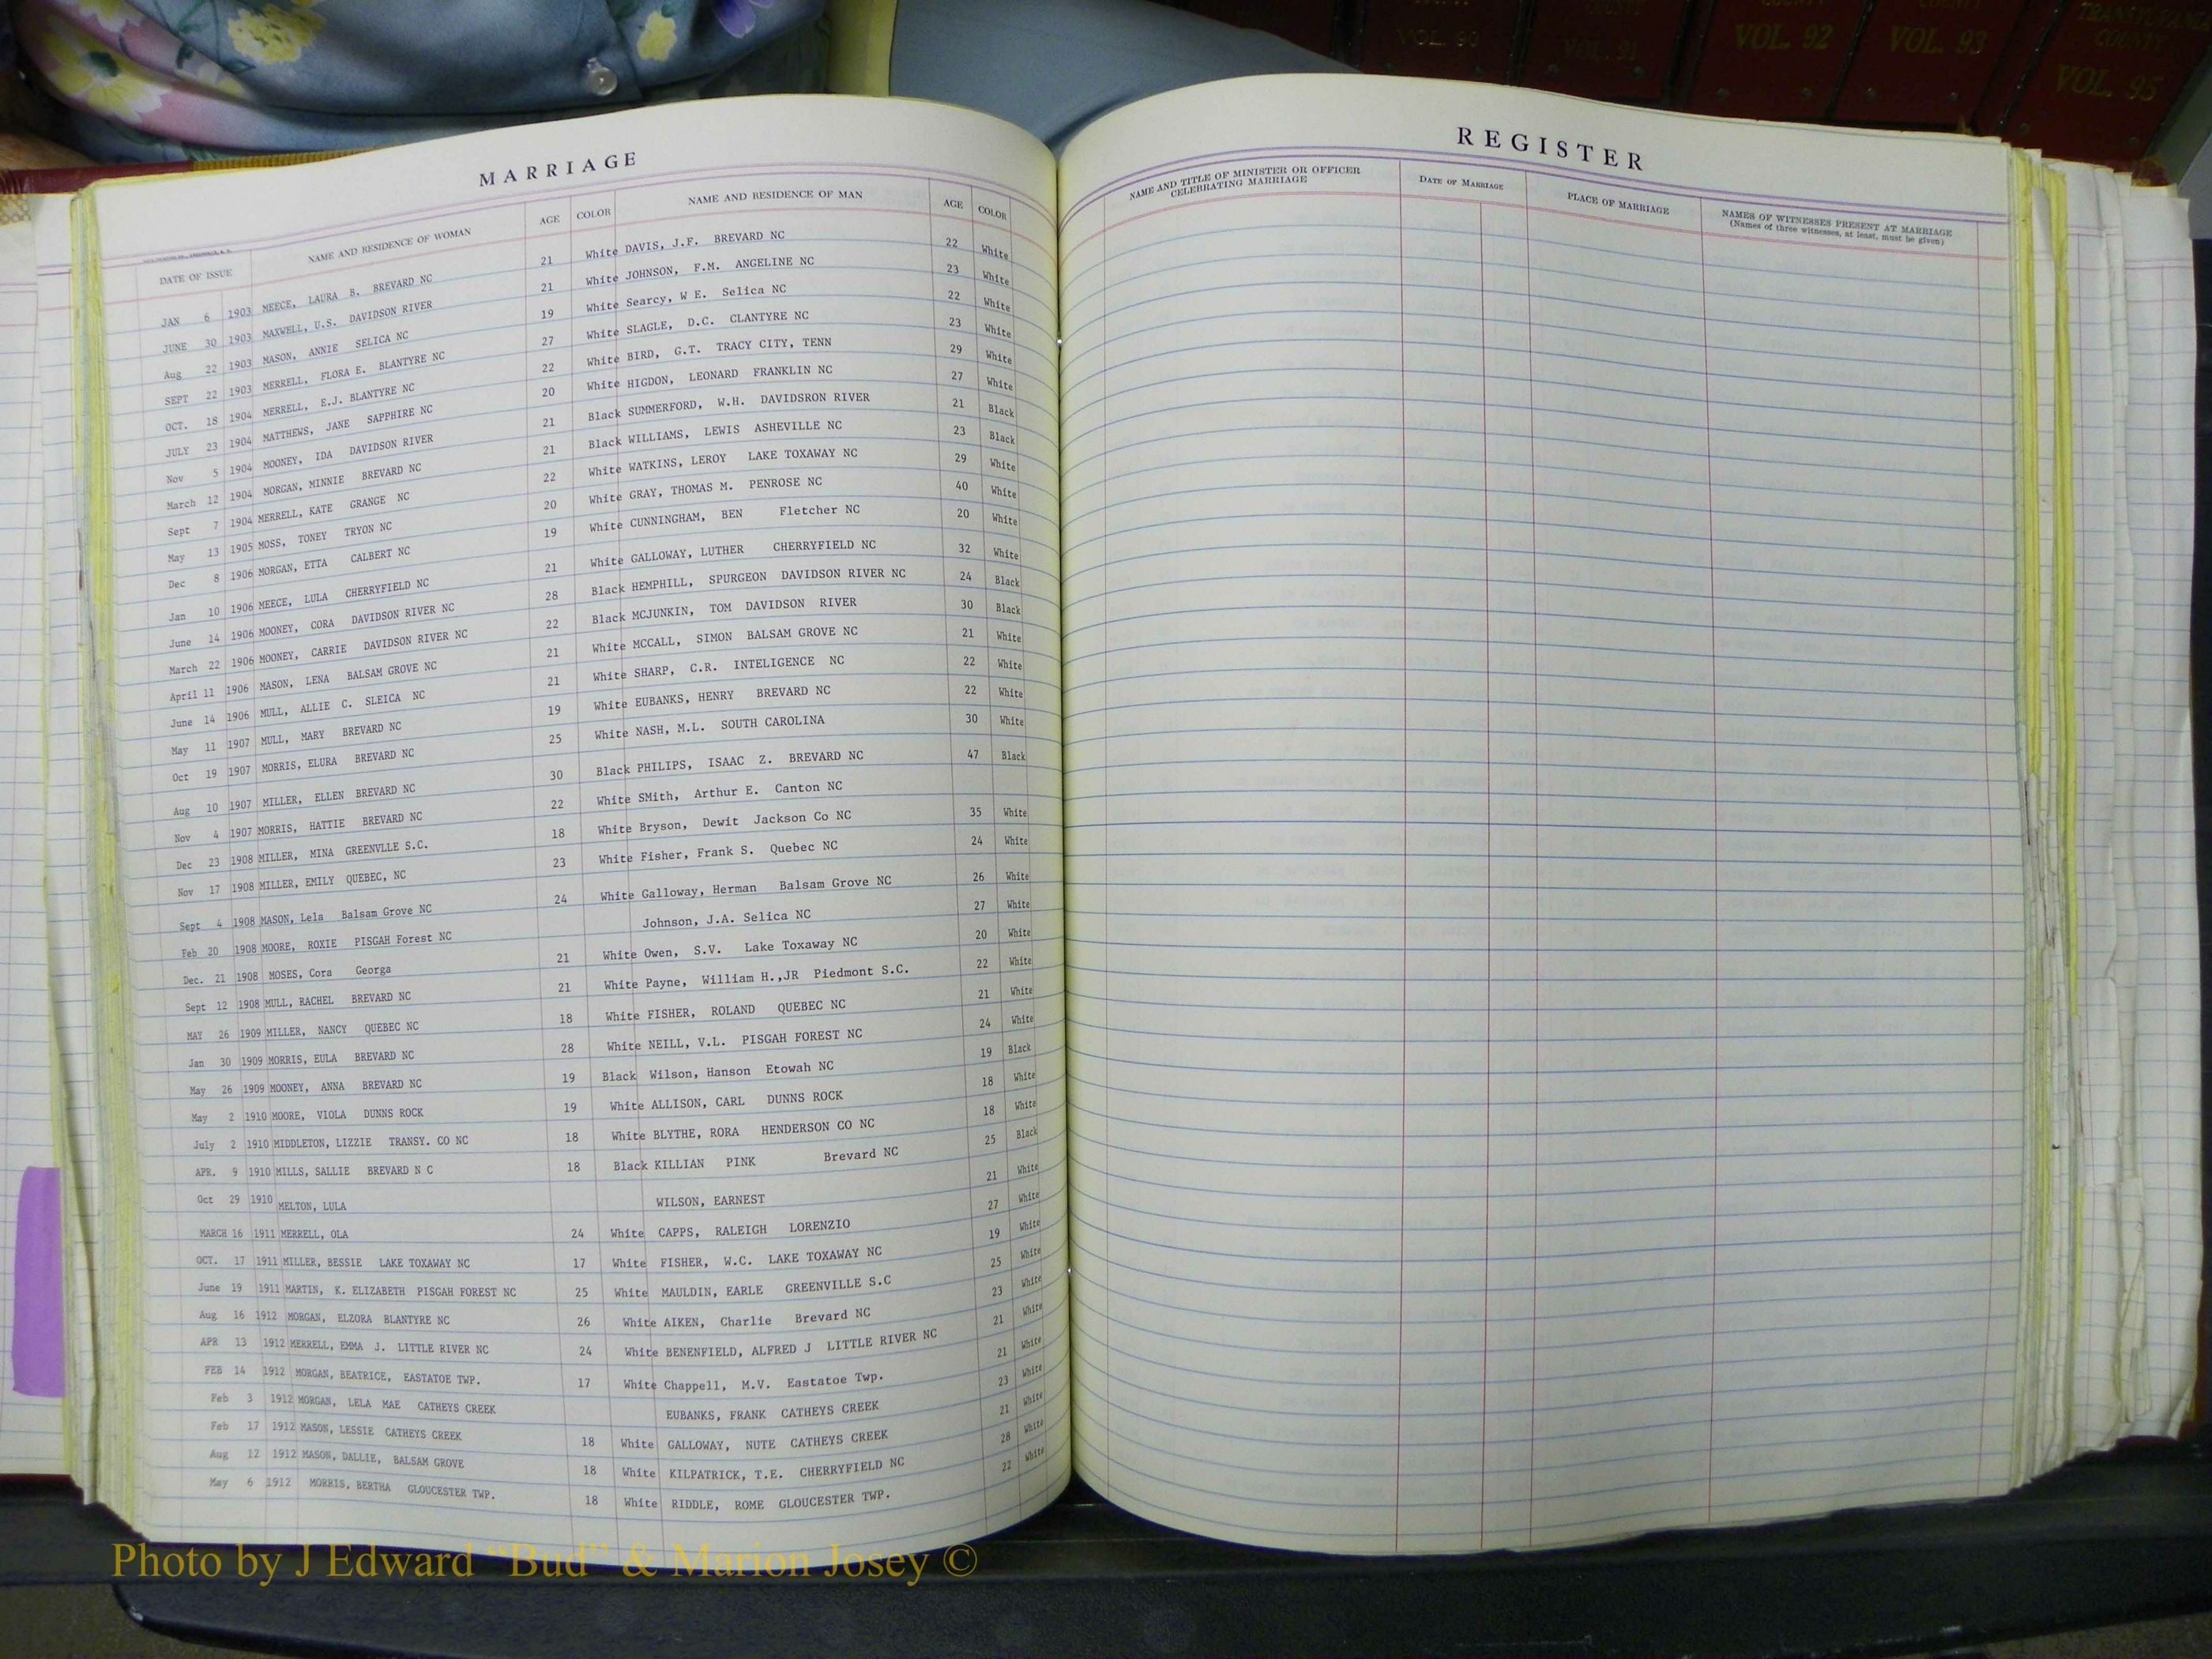 COUNTY VOL. 90
COUNTY VOL. 91
COUNTY VOL. 92
COUNTY VOL. 93
TRANSYLVANIA COUNTY VOL. 95
MARRIAGE
DATE OF ISSUE NAME AND RESIDENCE OF WOMAN AGE COLOR NAME AND RESIDENCE OF MAN AGE COLOR
JAN 6 1903 MEECE, LAURA B. BREVARD NC 21 White DAVIS, J.F. BREVARD NC 22 White
JUNE 30 1903 MAXWELL, U.S. DAVIDSON RIVER 21 White JOHNSON, F.M. ANGELINE NC 23 White
Aug 22 1903 MASON, ANNIE SELICA NC 19 White Searcy, W E. Selica NC 22 White
SEPT 22 1903 MERRELL, FLORA E. BLANTYRE NC 27 White SLAGLE, D.C. CLANTYRE NC 23 White
OCT. 18 1904 MERRELL, E.J. BLANTYRE NC 22 White BIRD, G.T. TRACY CITY, TENN 29 White
JULY 23 1904 MATTHEWS, JANE SAPPHIRE NC 20 White HIGDON, LEONARD FRANKLIN NC 27 White
Nov 5 1904 MOONEY, IDA DAVIDSON RIVER 21 Black SUMMERFORD, W.H. DAVIDSRON RIVER 21 Black
March 12 1904 MORGAN, MINNIE BREVARD NC 21 Black WILLIAMS, LEWIS ASHEVILLE NC 23 Black
Sept 7 1904 MERRELL, KATE GRANGE NC 22 White WATKINS, LEROY LAKE TOXAWAY NC 29 White
May 13 1905 MOSS, TONEY TRYON NC 20 White GRAY, THOMAS M. PENROSE NC 40 White
Dec 8 1906 MORGAN, ETTA CALBERT NC 19 White CUNNINGHAM, BEN Fletcher NC 20 White
Jan 10 1906 MEECE, LULA CHERRYFIELD NC 21 White GALLOWAY, LUTHER CHERRYFIELD NC 32 White
June 14 1906 MOONEY, CORA DAVIDSON RIVER NC 28 Black HEMPHILL, SPURGEON DAVIDSON RIVER NC 24 Black
March 22 1906 MOONEY, CARRIE DAVIDSON RIVER NC 22 Black MCJUNKIN, TOM DAVIDSON RIVER 30 Black
April 11 1906 MASON, LENA BALSAM GROVE NC 21 White MCCALL, SIMON BALSAM GROVE NC 21 White
June 14 1906 MULL, ALLIE C. SLEICA NC 21 White SHARP, C.R. INTELIGENCE NC 22 White
May 11 1907 MULL, MARY BREVARD NC 19 White EUBANKS, HENRY BREVARD NC 22 White
Oct 19 1907 MORRIS, ELURA BREVARD NC 25 White NASH, M.L. SOUTH CAROLINA 30 White
Aug 10 1907 MILLER, ELLEN BREVARD NC 30 Black PHILIPS, ISAAC Z. BREVARD NC 47 Black
Nov 4 1907 MORRIS, HATTIE BREVARD NC 22 White SMith, Arthur E. Canton NC
Dec 23 1908 MILLER, MINA GREENVLLE S.C. 18 White Bryson, Dewit Jackson Co NC 35 White
Nov 17 1908 MILLER, EMILY QUEBEC, NC 23 White Fisher, Frank S. Quebec NC 24 White
Sept 4 1908 MASON, Lela Balsam Grove NC 24 White Galloway, Herman Balsam Grove NC 26 White
Feb 20 1908 MOORE, ROXIE PISGAH Forest NC Johnson, J.A. Selica NC 27 White
Dec. 21 1908 MOSES, Cora Georga 21 White Owen, S.V. Lake Toxaway NC 20 White
Sept 12 1908 MULL, RACHEL BREVARD NC 21 White Payne, William H.,JR Piedmont S.C. 22 White
MAY 26 1909 MILLER, NANCY QUEBEC NC 18 White FISHER, ROLAND QUEBEC NC 21 White
Jan 30 1909 MORRIS, EULA BREVARD NC 28 White NEILL, V.L. PISGAH FOREST NC 24 White
May 26 1909 MOONEY, ANNA BREVARD NC 19 Black Wilson, Hanson Etowah NC 19 Black
May 2 1910 MOORE, VIOLA DUNNS ROCK 19 White ALLISON, CARL DUNNS ROCK 18 White
July 2 1910 MIDDLETON, LIZZIE TRANSY. CO NC 18 White BLYTHE, RORA HENDERSON CO NC 18 White
APR. 9 1910 MILLS, SALLIE BREVARD N C 18 Black KILLIAN PINK Brevard NC 25 Black
Oct 29 1910 MELTON, LULA WILSON, EARNEST 21 White
MARCH 16 1911 MERRELL, OLA 24 White CAPPS, RALEIGH LORENZIO 27 White
OCT. 17 1911 MILLER, BESSIE LAKE TOXAWAY NC 17 White FISHER, W.C. LAKE TOXAWAY NC 19 White
June 19 1911 MARTIN, K. ELIZABETH PISGAH FOREST NC 25 White MAULDIN, EARLE GREENVILLE S.C 25 White
Aug 16 1912 MORGAN, ELZORA BLANTYRE NC 26 White AIKEN, Charlie Brevard NC 23 White
APR 13 1912 MERRELL, EMMA J. LITTLE RIVER NC 24 White BENENFIELD, ALFRED J LITTLE RIVER NC 21 White
FEB 14 1912 MORGAN, BEATRICE, EASTATOE TWP. 17 White Chappell, M.V. Eastatoe Twp. 21 White
Feb 3 1912 MORGAN, LELA MAE CATHEYS CREEK EUBANKS, FRANK CATHEYS CREEK 23 White
Feb 17 1912 MASON, LESSIE CATHEYS CREEK 18 White GALLOWAY, NUTE CATHEYS CREEK 21 White
Aug 12 1912 MASON, DALLIE, BALSAM GROVE 18 White KILPATRICK, T.E. CHERRYFIELD NC 28 White
May 6 1912 MORRIS, BERTHA GLOUCESTER TWP. 18 White RIDDLE, ROME GLOUCESTER TWP. 22 White
REGISTER
NAME AND TITLE OF MINISTER OR OFFICER CELEBRATING MARRIAGE
DATE OF MARRIAGE
PLACE OF MARRIAGE
NAMES OF WITNESSES PRESENT AT MARRIAGE
(Names of three witnesses, at least, must be given)
Photo by J Edward “Bud” & Marion Josey ©